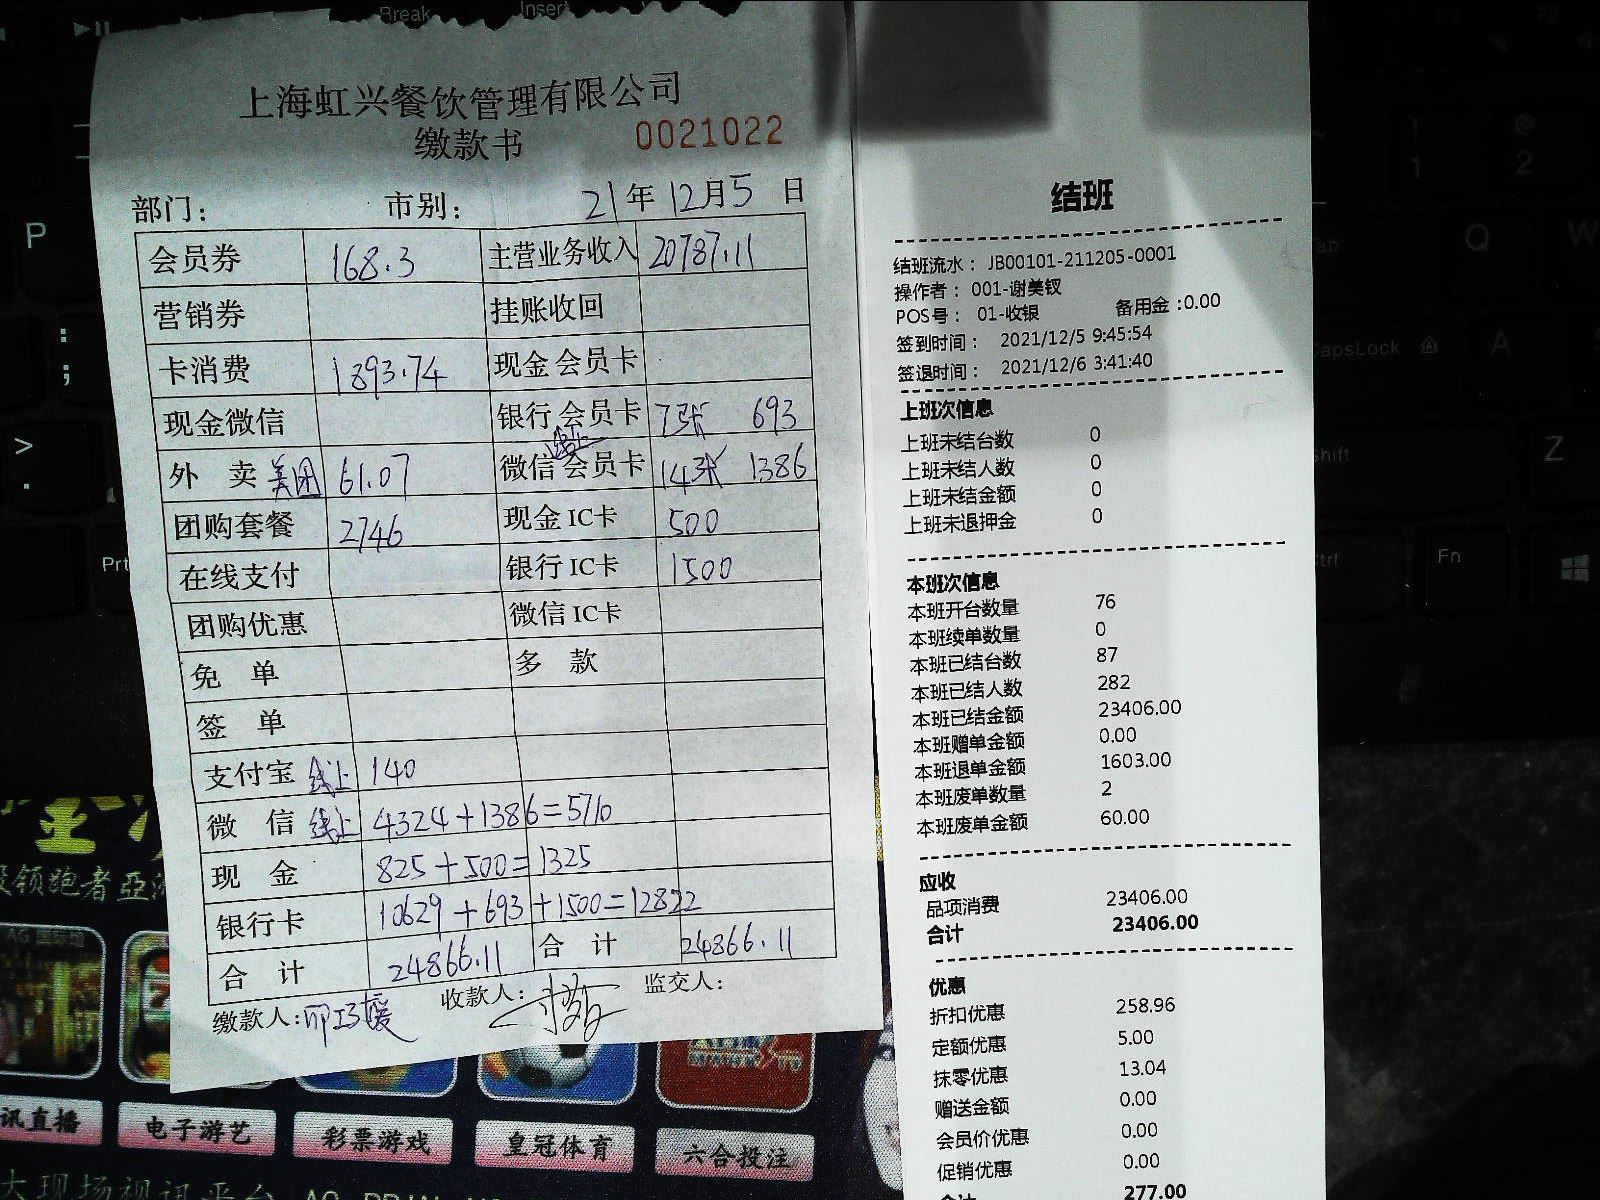 Break Insert
上海虹兴餐饮管理有限公司
缴款书 0021022
部门: 市别: 21年12月5日
会员券 168.3 主营业务收入 20787.11
营销券 挂账收回
卡消费 1893.74 现金会员卡
现金微信 银行会员卡 7张 693
外卖 美团 61.07 微信线上会员卡 14张 1386
团购套餐 2746 现金IC卡 500
在线支付 银行IC卡 1500
团购优惠 微信IC卡
免单 多款
签单
支付宝 线上 140
微信 线上 4324+1386=5710
现金 825+500=1325
银行卡 10629+693+1500=12822
合计 24866.11 合计 24866.11
缴款人: 收款人: 监交人:
结班
结班流水: JB00101-211205-0001
操作者: 001-谢美钗
POS号: 01-收银 备用金:0.00
签到时间: 2021/12/5 9:45:54
签退时间: 2021/12/6 3:41:40
上班次信息
上班未结台数 0
上班未结人数 0
上班未结金额 0
上班未退押金 0
本班次信息
本班开台数量 76
本班续单数量 0
本班已结台数 87
本班已结人数 282
本班已结金额 23406.00
本班赠单金额 0.00
本班退单金额 1603.00
本班废单数量 2
本班废单金额 60.00
应收
品项消费 23406.00
合计 23406.00
优惠
折扣优惠 258.96
定额优惠 5.00
抹零优惠 13.04
赠送金额 0.00
会员价优惠 0.00
促销优惠 0.00
合计 277.00
P
: ;
> .
Prt
Q W
CapsLock A
Z
Fn
! 1 @ 2
领跑者亞
讯直播 电子游艺 彩票游戏 皇冠体育 六合投注
大现场视讯平台